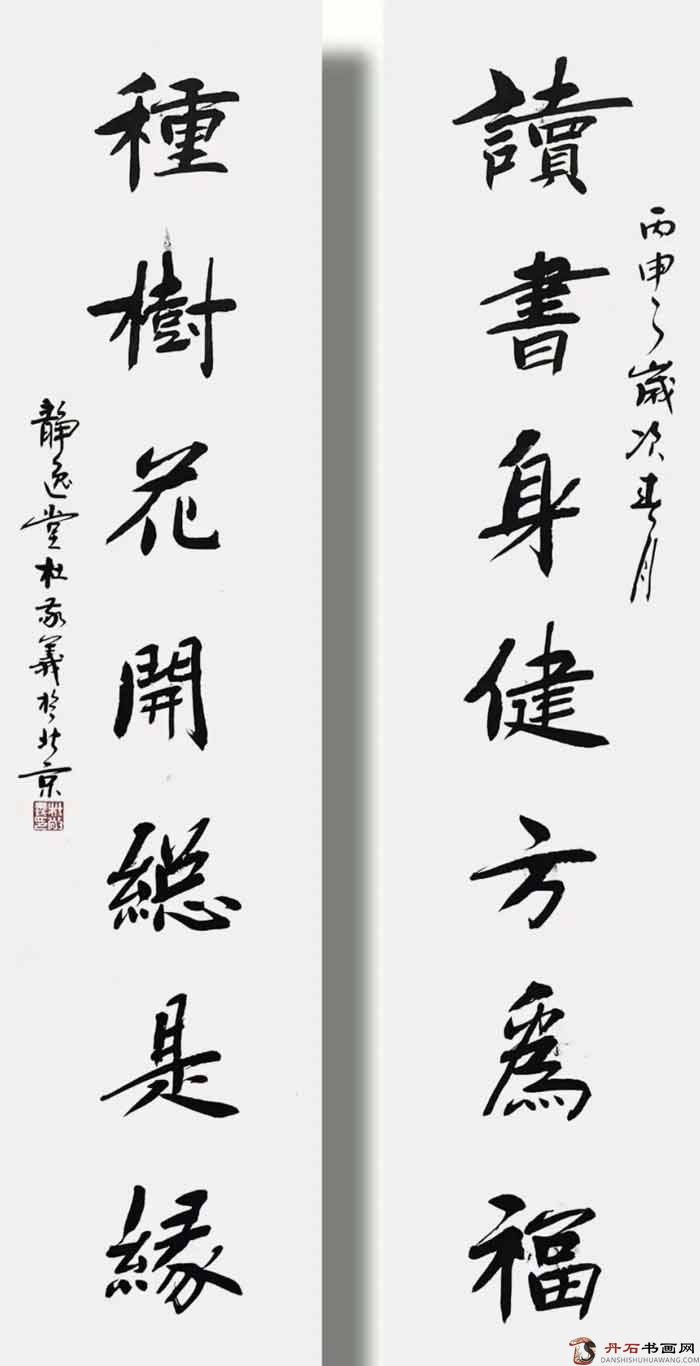 讀書身健方爲福
丙申之歲次春月
種樹花開總是緣
靜逸堂杜敬義於北京
丹石书画网
DANSHISHUHUAWANG.COM